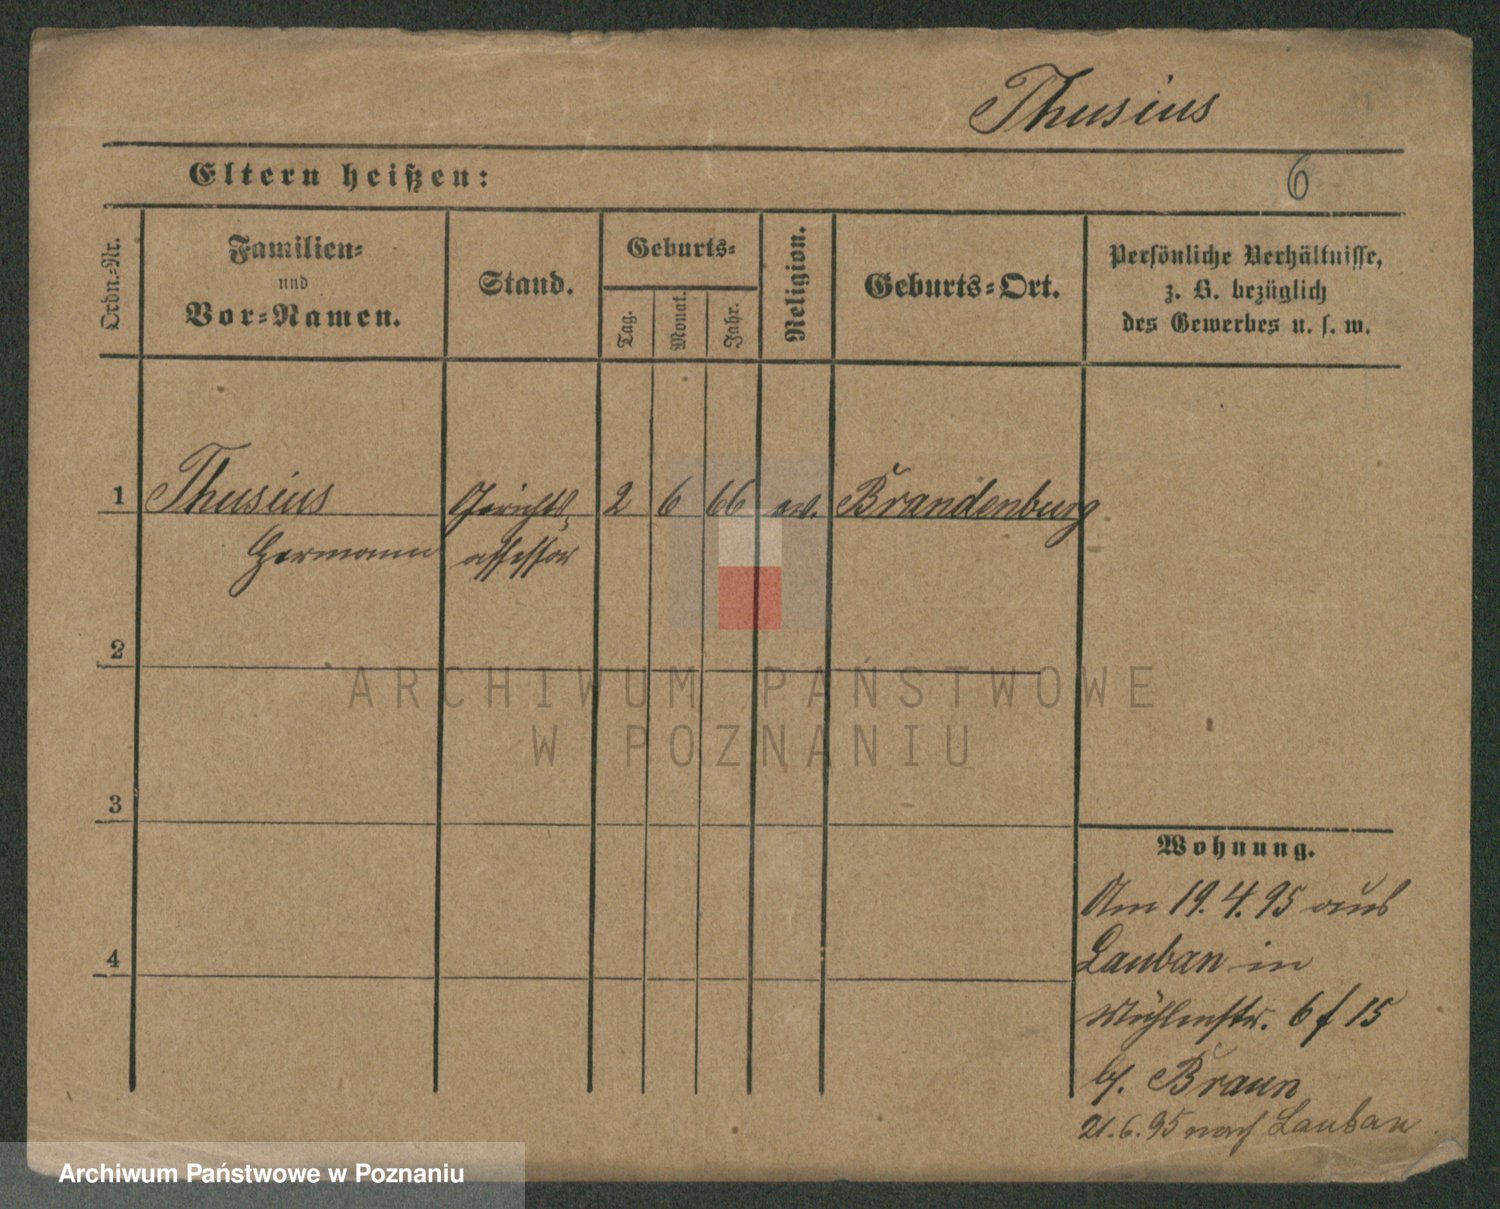 Thusius
Eltern heißen:
6
Ordn.-Nr.
Familien-
und
Vor-Namen.
Stand.
Geburts-
Tag.
Monat.
Jahr.
Religion.
Geburts-Ort.
Persönliche Verhältnisse,
z. B. bezüglich
des Gewerbes u. s. w.
1 Thusius Gerichts- 2 6 66 ev. Brandenburg
Hermann assessor
2
ARCHIWUM PAŃSTWOWE
W POZNANIU
3
Wohnung.
Am 19.4.95 aus
Lauban in
4
Mühlenstr. 6 f 15
b/. Braun
21.6.95 nach Lauban
Archiwum Państwowe w Poznaniu